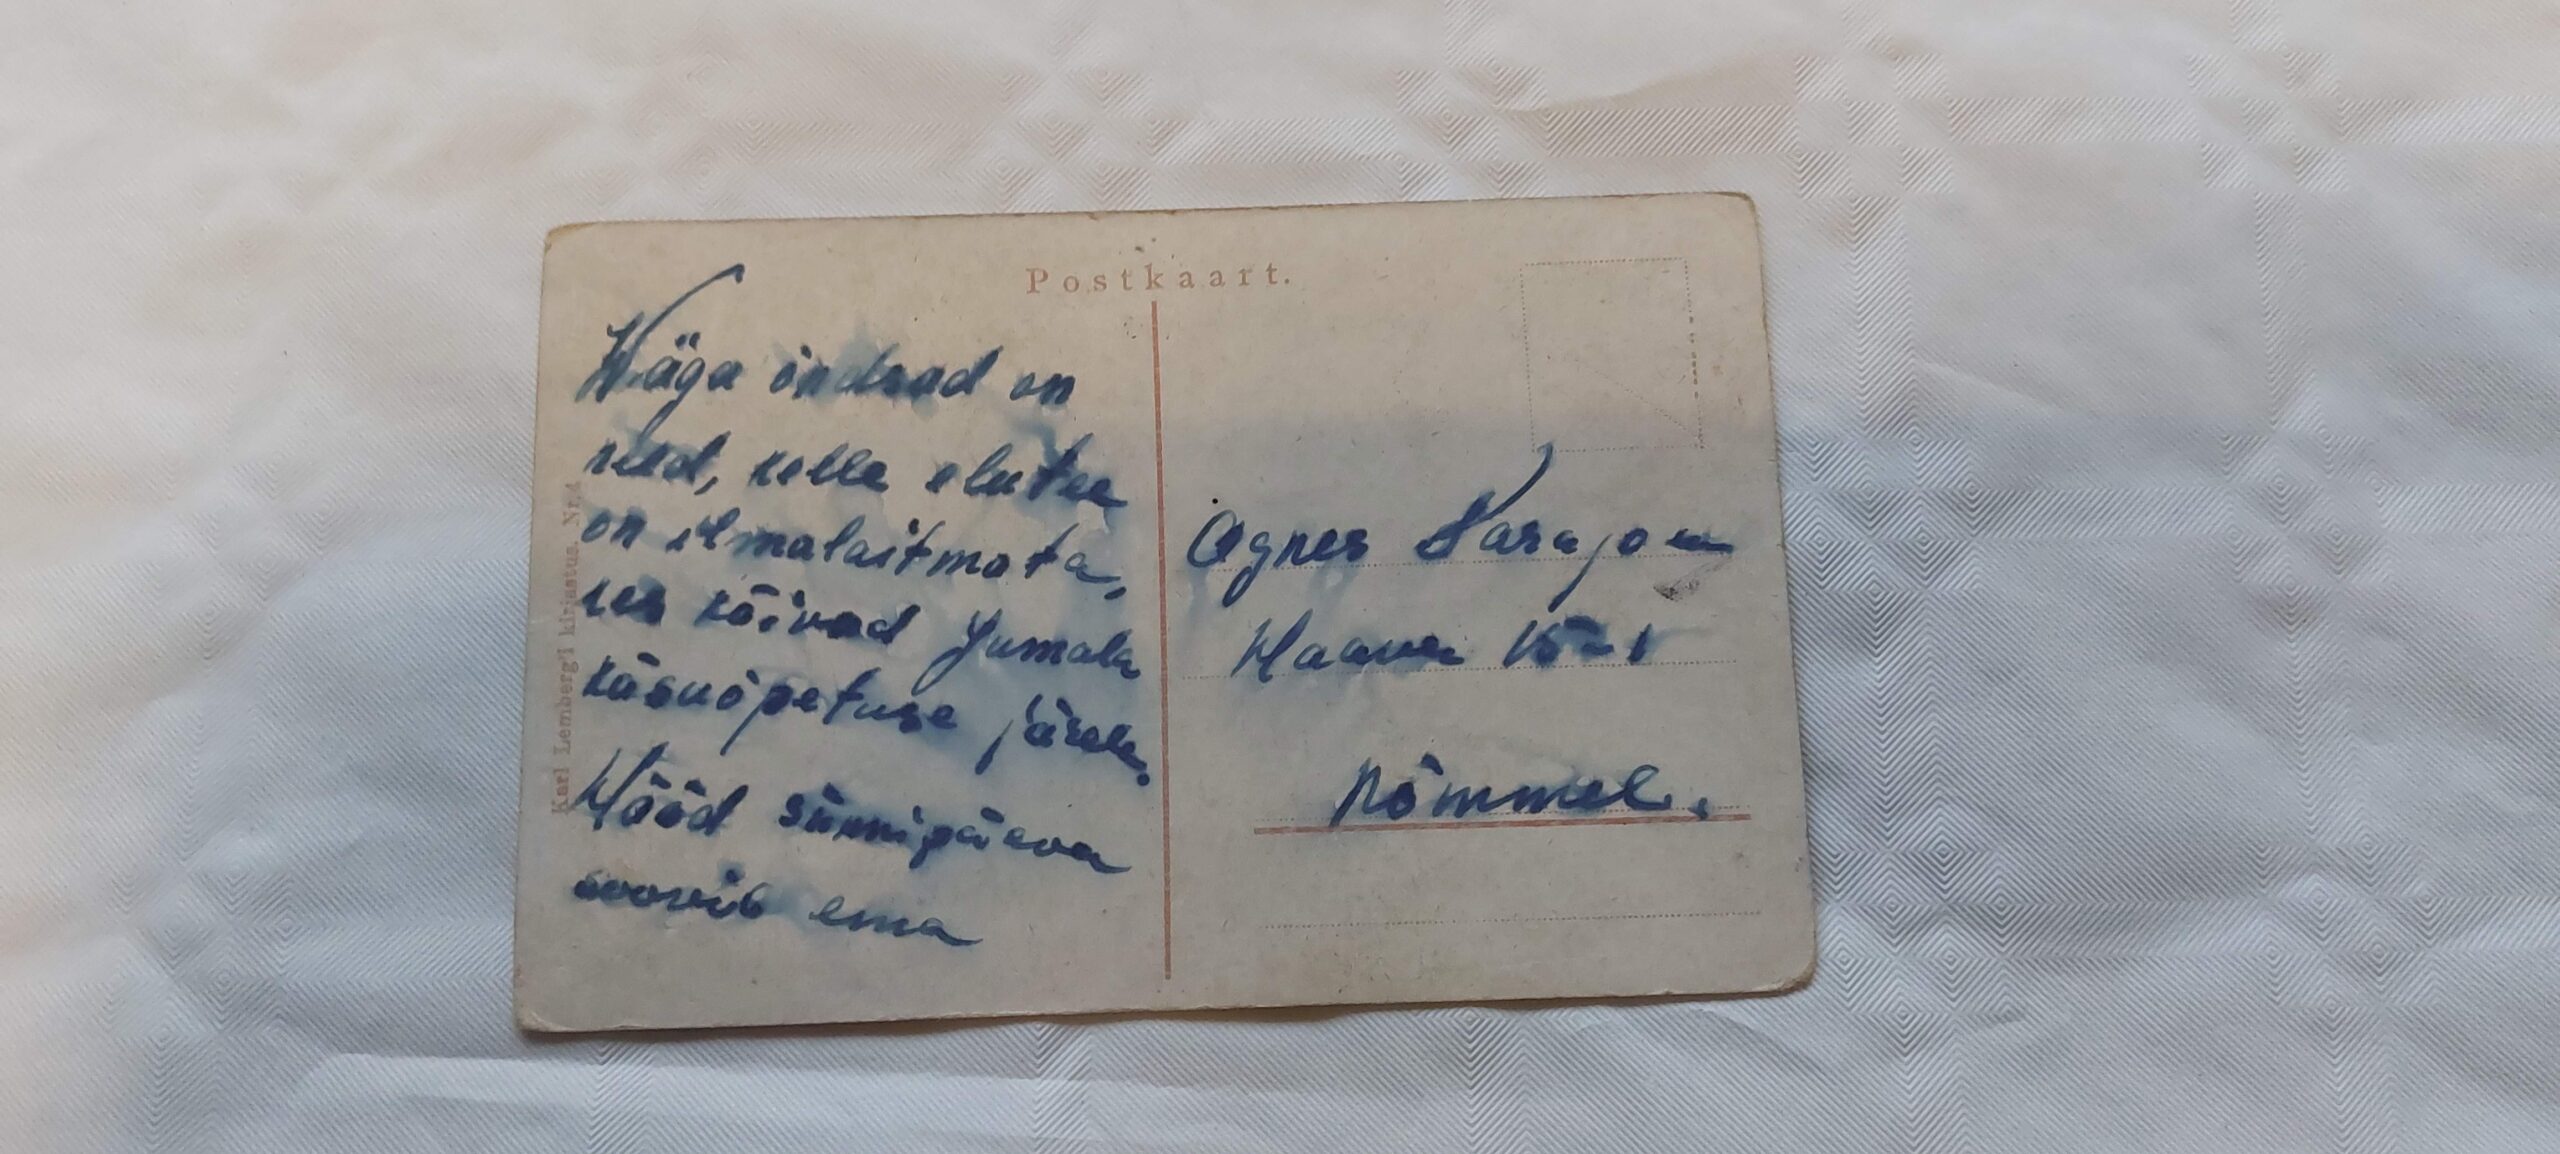 Postkaart.
Wäga õndsad on
need, kelle elutee
on ilmalaitmata,
kes käivad Jumala
käsuõpetuse järele.
Hääd sünnipäeva
soovib ema
Agnes
Haava 15-1
Nõmmel.
Karl Lemberg'i kirjastus. Nr. 4